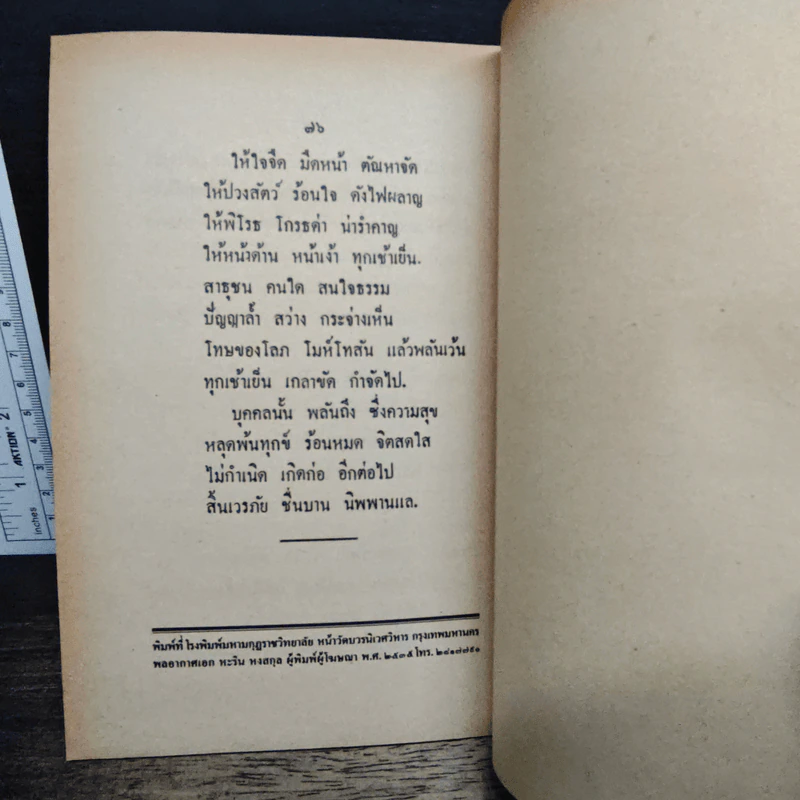 ๗๖
ให้ใจจืด มืดหน้า ตัณหาจัด
ให้ปวงสัตว์ ร้อนใจ ดังไฟผลาญ
ให้พิโรธ โกรธด่า น่ารำคาญ
ให้หน้าด้าน หน้าเง้า ทุกเช้าเย็น.
สาธุชน คนใด สนใจธรรม
ปัญญาล้ำ สว่าง กระจ่างเห็น
โทษของโลภ โมห์โทสัน แล้วพลันเว้น
ทุกเช้าเย็น เกลาขัด กำจัดไป.
บุคคลนั้น พลันถึง ซึ่งความสุข
หลุดพ้นทุกข์ ร้อนหมด จิตสดใส
ไม่กำเนิด เกิดก่อ อีกต่อไป
สิ้นเวรภัย ชื่นบาน นิพพานแล.
พิมพ์ที่ โรงพิมพ์มหามกุฏราชวิทยาลัย หน้าวัดบวรนิเวศวิหาร กรุงเทพมหานคร
พลอากาศเอก หะริน หงสกุล ผู้พิมพ์ผู้โฆษณา พ.ศ. ๒๕๓๕ โทร. ๒๘๑๗๗๕๑
inches
AKTION
1
2
1
2
3
4
5
6
7
8